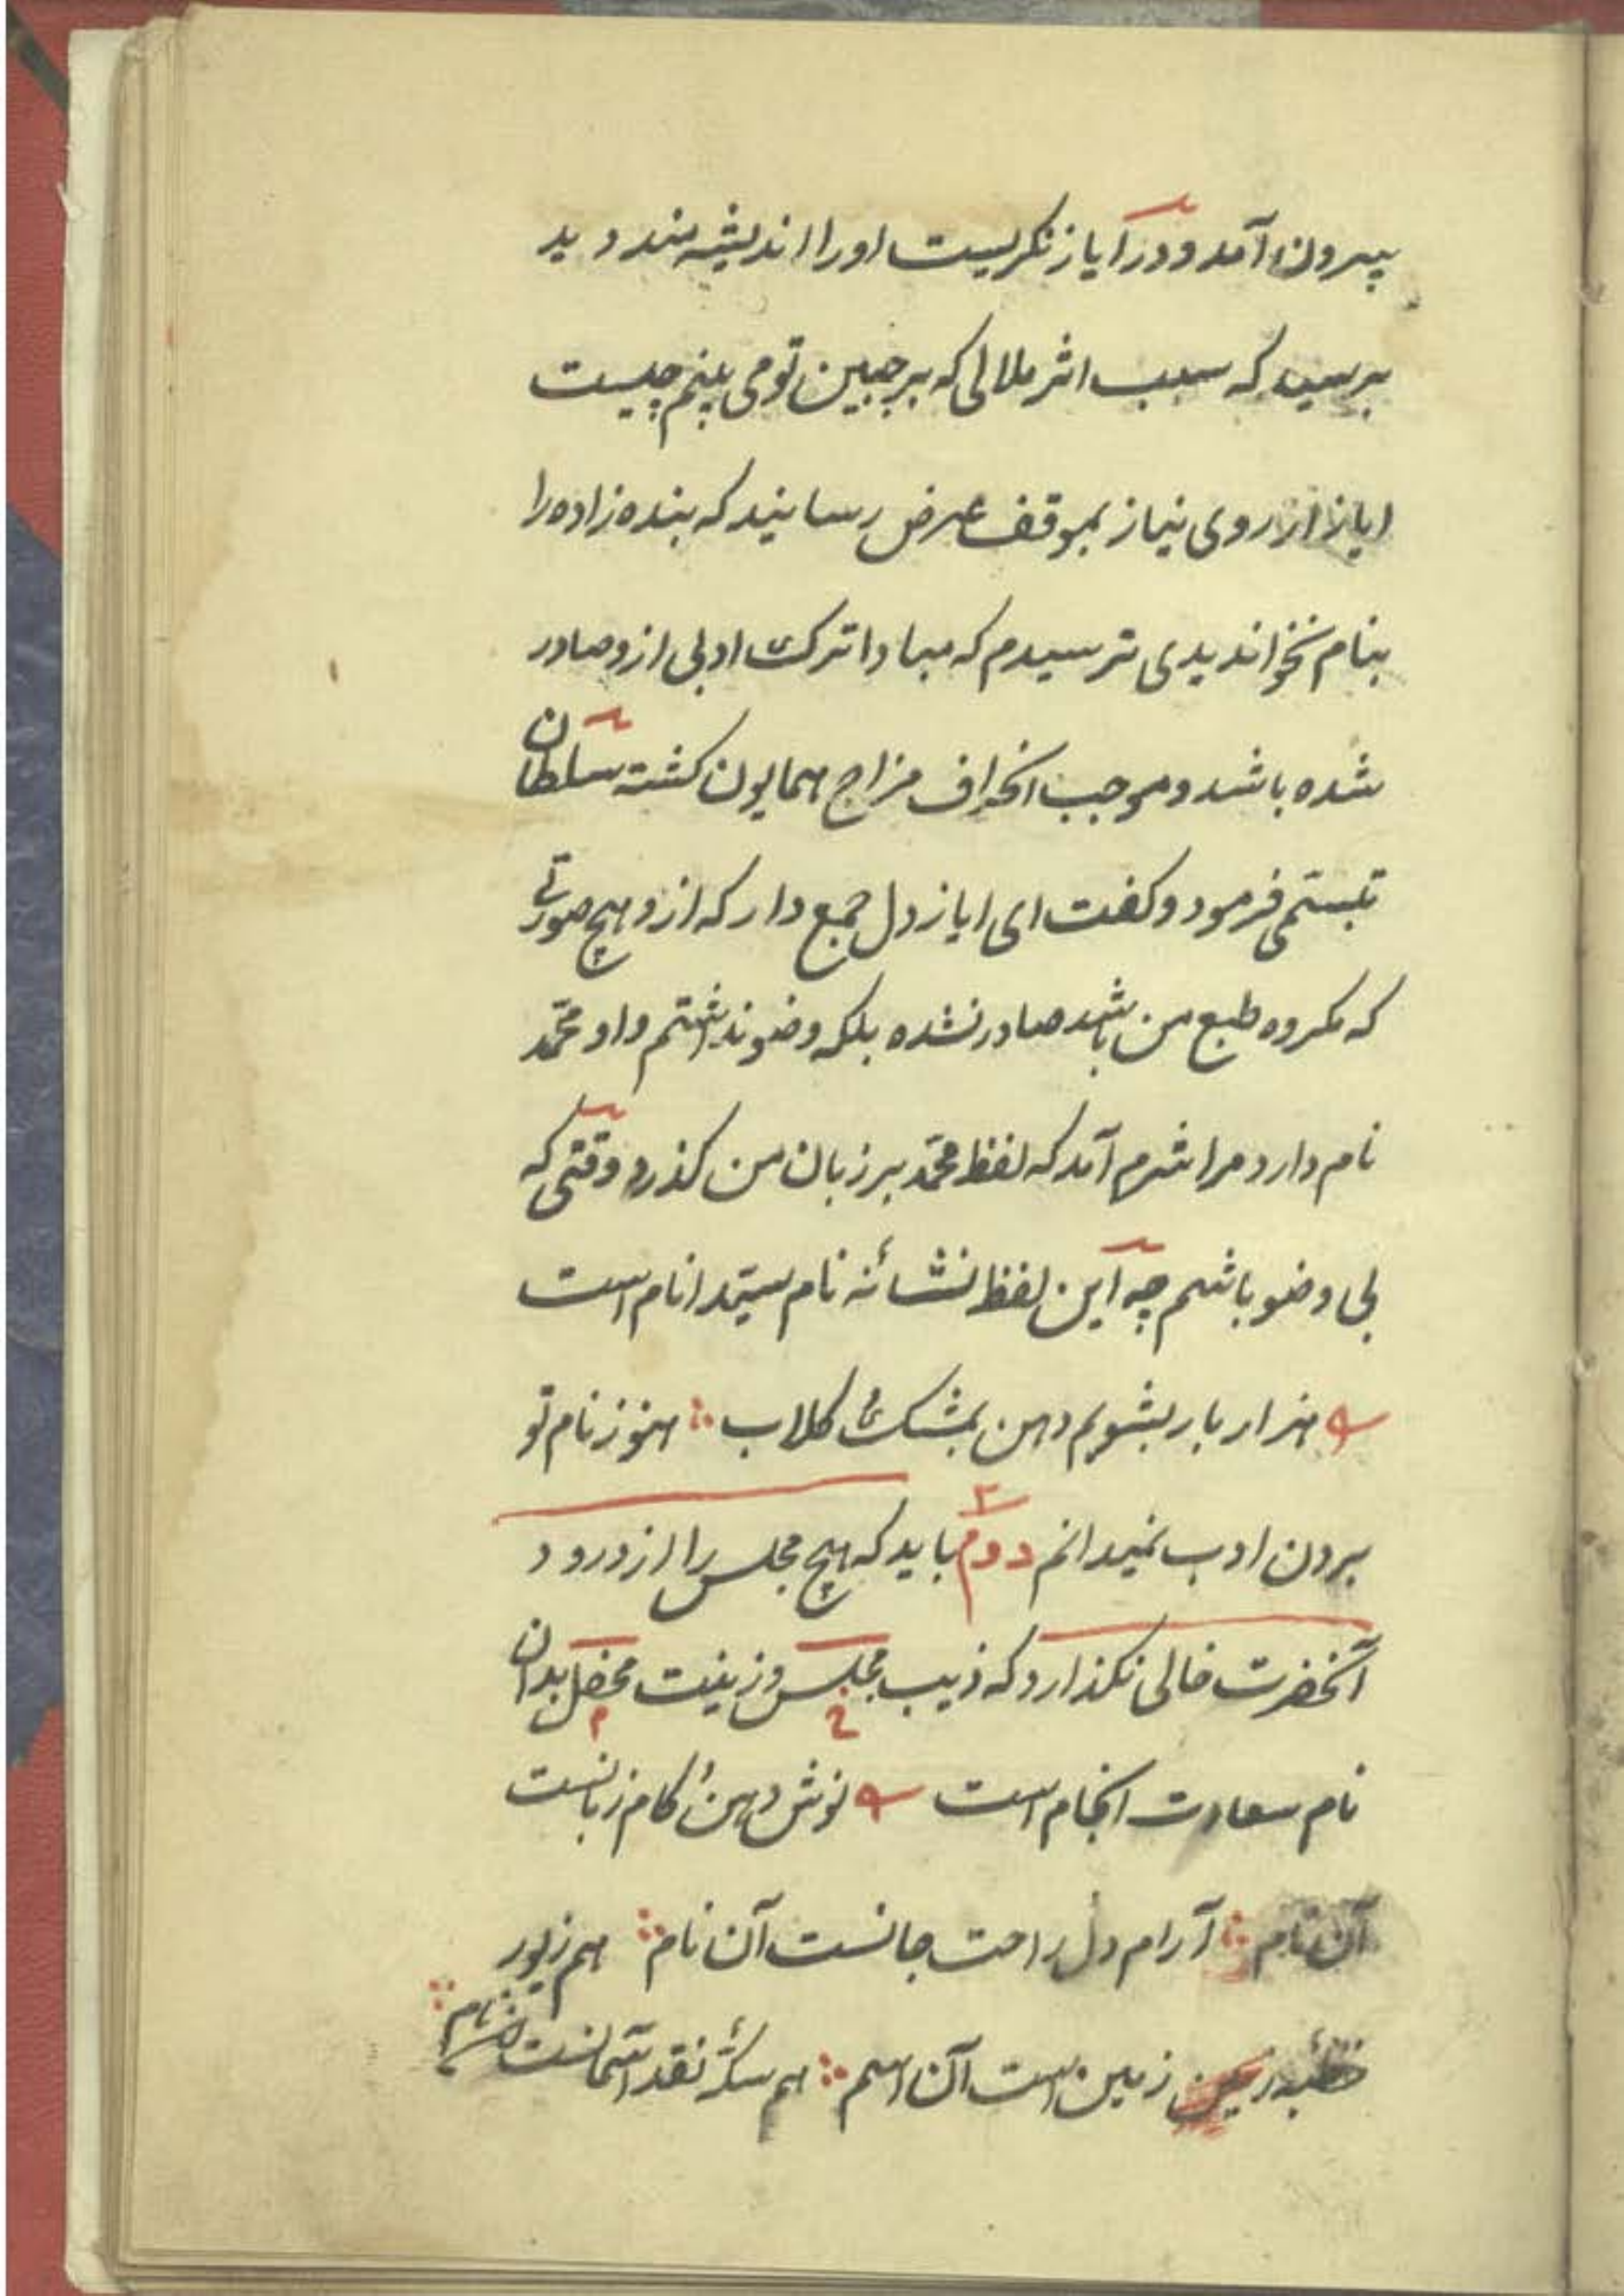 بیرون آمد و در ایاز نکریست او را اندیشه مند دید
پرسید که سبب اثر ملالی که بر جبین تو می بینم چیست
ایاز از روی نیاز بموقف عرض رسانید که بنده زاده را
بنام نخواندیدی ترسیدم که مبادا ترک ادبی ازو صادر
شده باشد و موجب انحراف مزاج همایون کشته سلطان
تبسّمی فرمود و کفت ای ایاز دل جمع دار که ازو هیچ صورتی
که مکروه طبع من باشد صادر نشده بلکه وضو نداشتم و او محمّد
نام دارد مرا شرم آمد که لفظ محمّد بر زبان من کذرد وقتی که
بی وضو باشم چه این لفظ نشانهٔ نام سیّد انام است
هزار بار بشویم دهن بمشک و کلاب ∴ هنوز نام تو
بردن ادب نمیدانم دوم باید که هیچ مجلس را از درود
آنحضرت خالی نکذارد که زیب مجلس و زینت محفل بدان
نام سعادت انجام است نوش دهن و کام زبانست
آن نام ∴ آرام دل راحت جانست آن نام ∴ هم زیور
خطبهٔ زمین است آن اسم ∴ هم سکّهٔ نقد آسمانست آن نام ∴